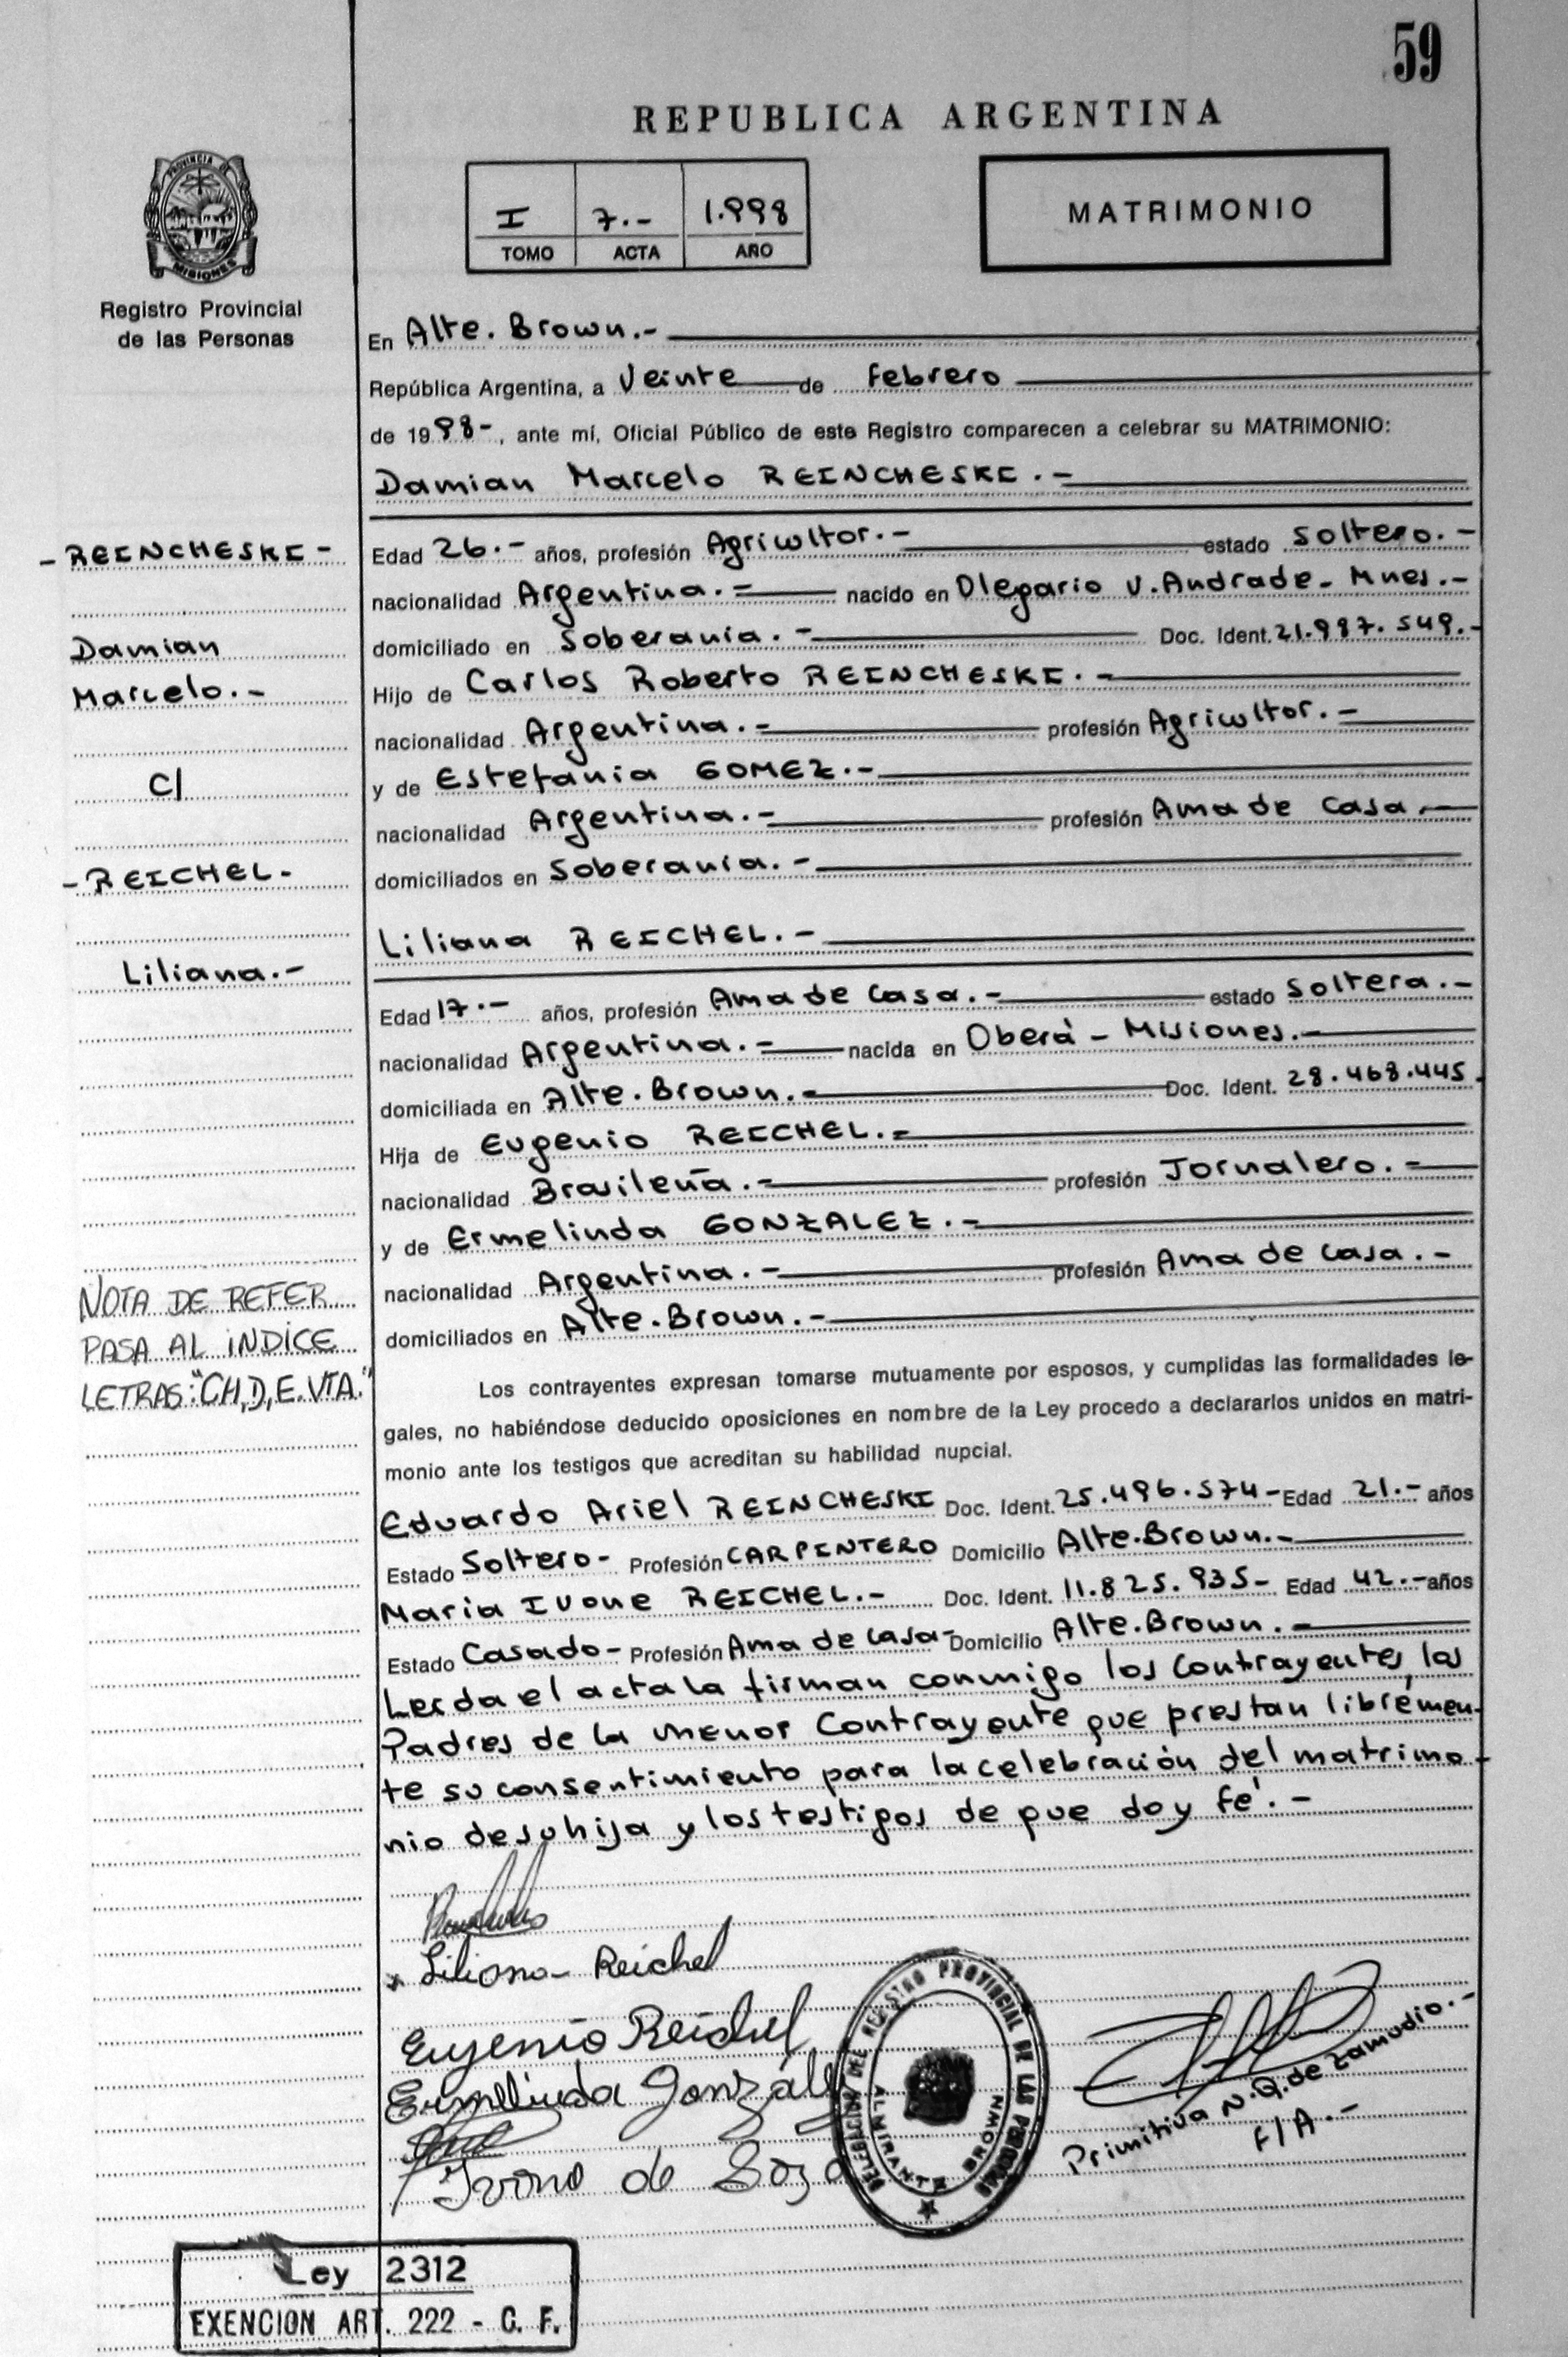 59
REPUBLICA ARGENTINA
PROVINCIA DE
MISIONES
Registro Provincial
de las Personas
I 7.- 1.998
TOMO ACTA AÑO
MATRIMONIO
En Alte. Brown.-
República Argentina, a Veinte de Febrero
de 1998-, ante mí, Oficial Público de este Registro comparecen a celebrar su MATRIMONIO:
Damian Marcelo REINCHESKI.-
-REINCHESKI-
Damian
Marcelo.-
C/
-REICHEL-
Liliana.-
Edad 26.- años, profesión Agricultor.- estado Soltero.-
nacionalidad Argentina.- nacido en Olegario V. Andrade- Mnes.-
domiciliado en Soberanía.- Doc. Ident. 21.987.549.-
Hijo de Carlos Roberto REINCHESKI.-
nacionalidad Argentina.- profesión Agricultor.-
y de Estefania GOMEZ.-
nacionalidad Argentina.- profesión Ama de Casa.-
domiciliados en Soberanía.-
Liliana REICHEL.-
Edad 17.- años, profesión Ama de Casa.- estado Soltera.-
nacionalidad Argentina.- nacida en Oberá - Misiones.-
domiciliada en Alte. Brown.- Doc. Ident. 28.468.445.
Hija de Eugenio REICHEL.-
nacionalidad Brasileña.- profesión Jornalero.-
y de Ermelinda GONZALEZ.-
nacionalidad Argentina.- profesión Ama de Casa.-
domiciliados en Alte. Brown.-
NOTA DE REFER
PASA AL INDICE
LETRAS: "CH, D, E. VTA."
Los contrayentes expresan tomarse mutuamente por esposos, y cumplidas las formalidades le-
gales, no habiéndose deducido oposiciones en nombre de la Ley procedo a declararlos unidos en matri-
monio ante los testigos que acreditan su habilidad nupcial.
Eduardo Ariel REINCHESKI Doc. Ident. 25.496.574- Edad 21.- años
Estado Soltero- Profesión CARPINTERO Domicilio Alte. Brown.-
Maria Ivone REICHEL.- Doc. Ident. 11.825.935- Edad 42.- años
Estado Casado- Profesión Ama de Casa- Domicilio Alte. Brown.-
Leida el acta la firman conmigo los Contrayentes, los
Padres de la menor Contrayente que prestan libremen-
te su consentimiento para la celebración del matrimo-
nio de su hija y los testigos de que doy fé.-
Liliana Reichel
Eugenio Reichel
Ermelinda González
Ivone de
DELEGACION DEL REGISTRO PROVINCIAL DE LAS PERSONAS
ALMIRANTE BROWN
Primitiva N.Q. de Zamudio.-
F/A.-
Ley 2312
EXENCION ART. 222 - C. F.